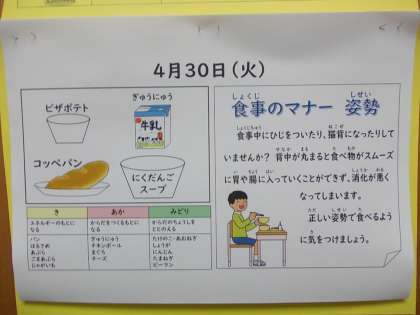 4月30日（火）
ピザポテト
ぎゅうにゅう
牛乳
コッペパン
にくだんご
スープ
き
あか
みどり
エネルギーのもとに
なる
からだをつくるもとに
なる
からだのちょうしを
ととのえる
パン
はるさめ
あぶら
ごまあぶら
じゃがいも
ぎゅうにゅう
チキンボール
まぐろ
チーズ
たけのこ・あおねぎ
しょうが
にんじん
たまねぎ
ピーマン
しょくじ
しせい
食事のマナー 姿勢
しょくじちゅう
ねこぜ
食事中にひじをついたり、猫背になったりして
せなか
まる
た
もの
いませんか？ 背中が丸まると食べ物がスムーズ
い
ちょう
はい
しょうか
わる
に胃や腸に入っていくことができず、消化が悪く
なってしまいます。
ただ
しせい
た
正しい姿勢で食べるよう
き
に気をつけましょう。